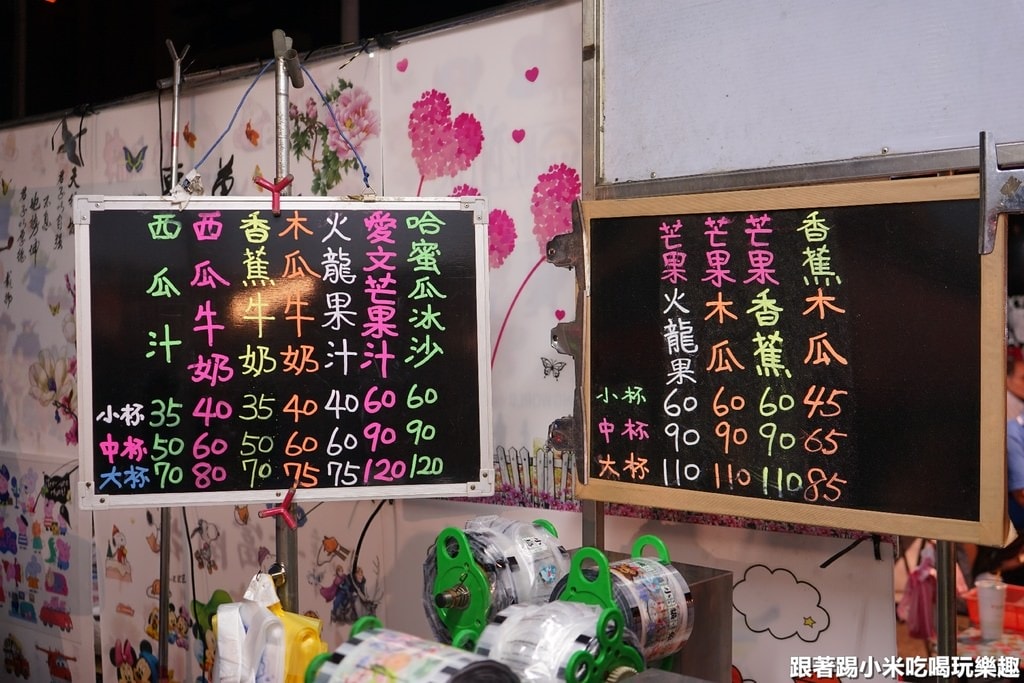 西瓜汁
西瓜牛奶
香蕉牛奶
木瓜牛奶
火龍果汁
愛文芒果汁
哈蜜瓜冰沙
小杯 35 40 35 40 40 60 60
中杯 50 60 50 60 60 90 90
大杯 70 80 70 75 75 120 120
芒果火龍果
芒果木瓜
芒果香蕉
香蕉木瓜
小杯 60 60 60 45
中杯 90 90 90 65
大杯 110 110 110 85
跟著踢小米吃喝玩樂趣